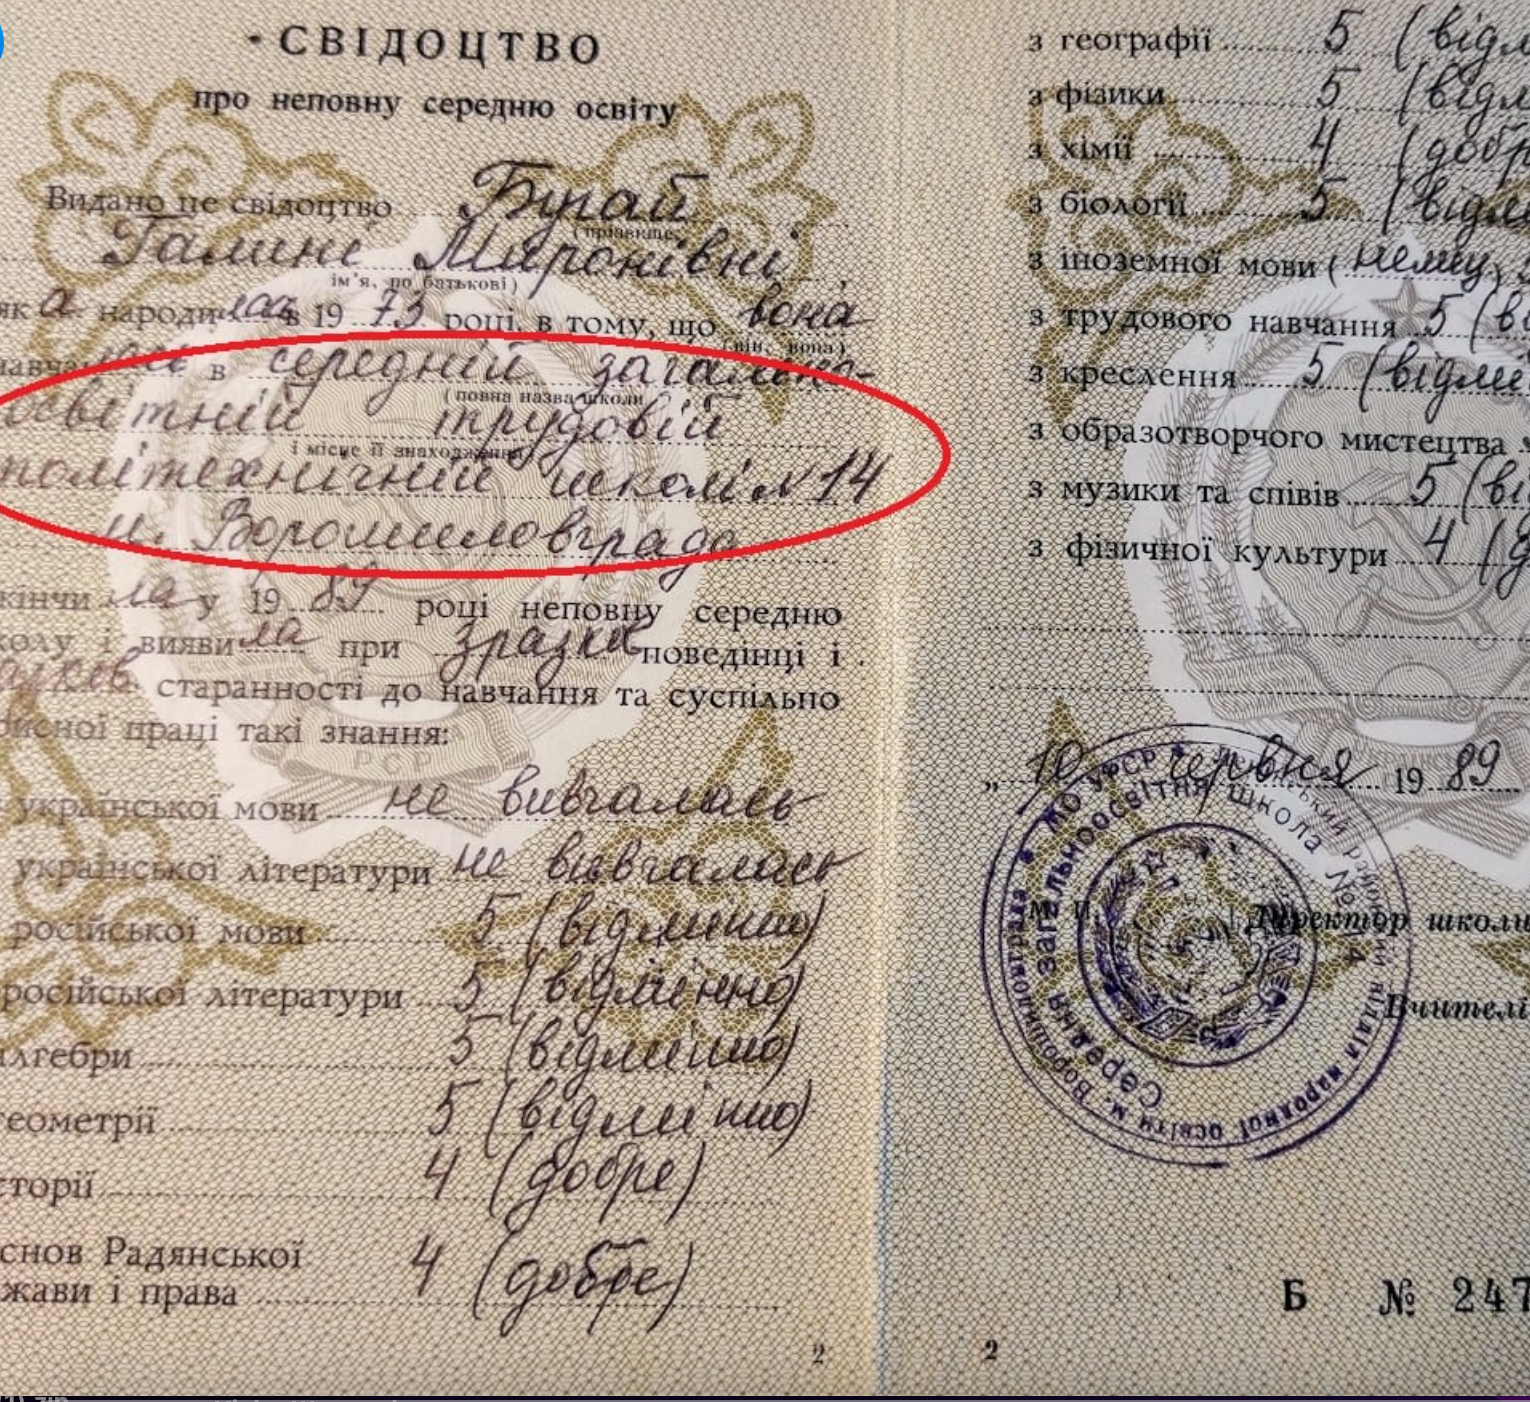 СВІДОЦТВО
про неповну середню освіту
Видано це свідоцтво Бугай
(прізвище,
Галині Миронівні,
ім'я, по батькові)
як а народилась в 1973 році, в тому, що вона
(він, вона)
навча лась в середній загально-
(повна назва школи
освітній трудовій
і місце її знаходження)
політехнічній школі № 14
м. Ворошиловграда
кінчи ла у 1989 році неповну середню
колу і вияви ла при зразков поведінці і
старанності до навчання та суспільно
рисної праці такі знання:
РСР
української мови не вивчалась
української літератури не вивчалась
російської мови 5 (відмінно)
російської літератури 5 (відмінно)
алгебри 5 (відмінно)
геометрії 5 (відмінно)
сторії 4 (добре)
снов Радянської
жави і права 4 (добре)
2
з географії 5 (відм
з фізики 5 (відм
з хімії 4 (добр
з біології 5 (відм
з іноземної мови (німец)
з трудового навчання 5 (в
з креслення 5 (відмі
з образотворчого мистецтва
з музики та співів 5 (ві
з фізичної культури 4 (д
„10 червня 1989
М. П. Директор школи
Вчителі
УРСР
Середня загальноосвітня школа № 14
відділ народної освіти м. Ворошиловграда
Б № 247
2